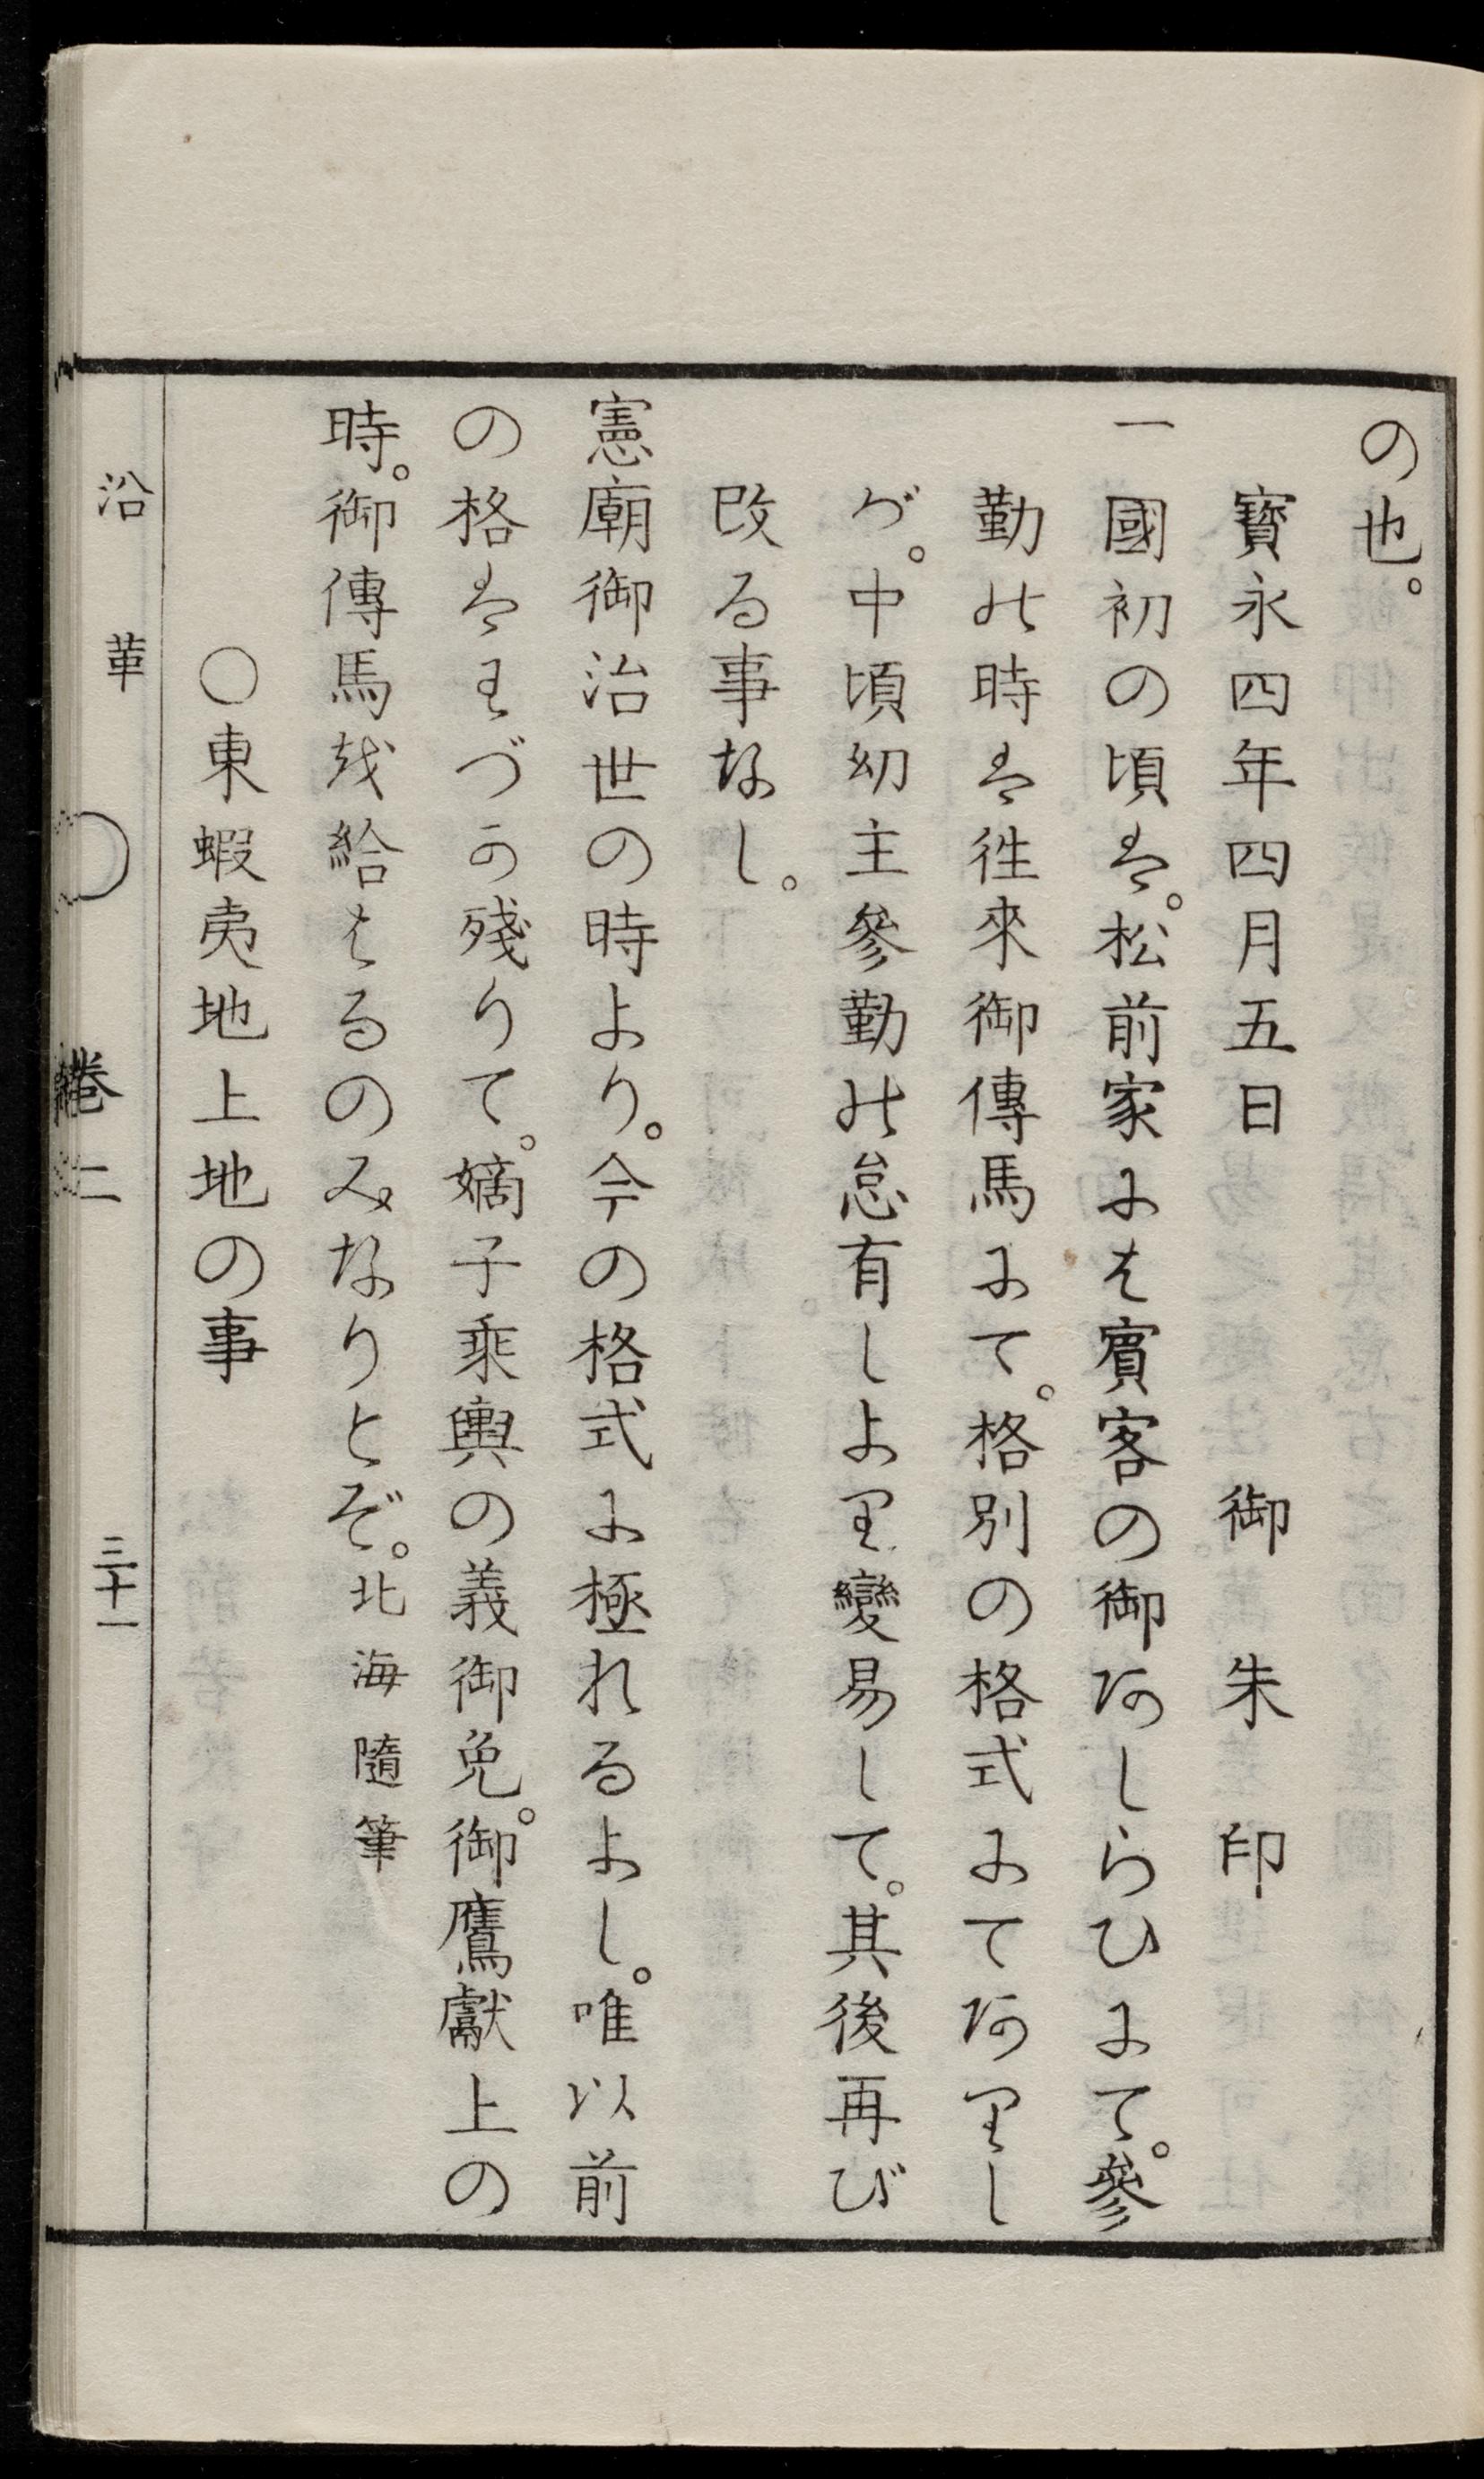 の也。
寶永四年四月五日　御朱印
一國初の頃は。松前家には賓客の御あしらひにて。參
勤の時は徃來御傳馬にて。格別の格式にてありし
が。中頃幼主參勤の怠有しより變易して。其後再び
改る事なし。
憲廟御治世の時より。今の格式に極れるよし。唯以前
の格はわづか殘りて。嫡子乘輿の義御免。御鷹獻上の
時。御傳馬を給はるのみなりとぞ。北海隨筆
〇東蝦夷地上地の事
沿革　卷二　三十一